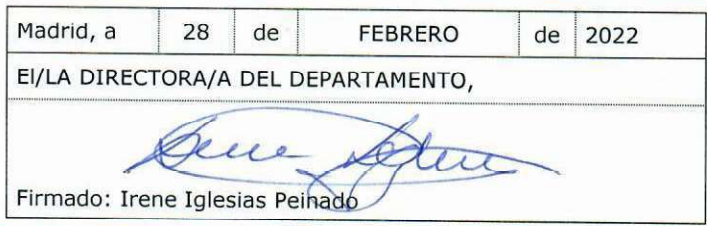 Madrid, a 28 de FEBRERO de 2022
El/LA DIRECTORA/A DEL DEPARTAMENTO,
Firmado: Irene Iglesias Peinado